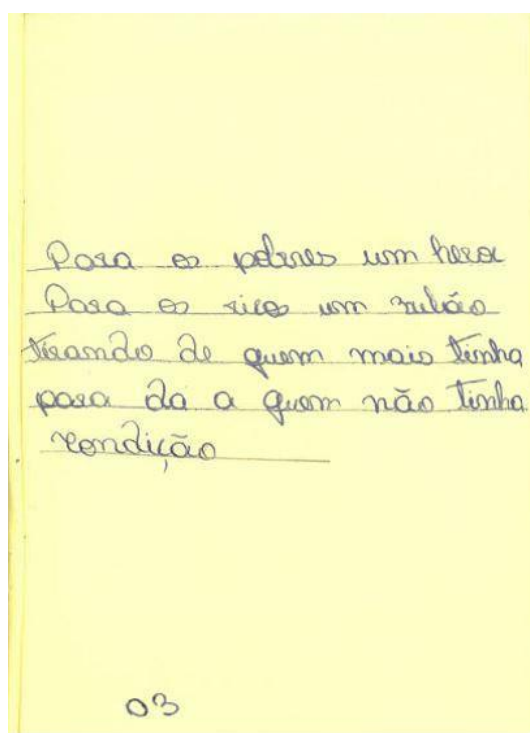 Para os pobres um heroi
Para os ricos um rubão
tirando de quem mais tinha
para da a quem não tinha
condição
03